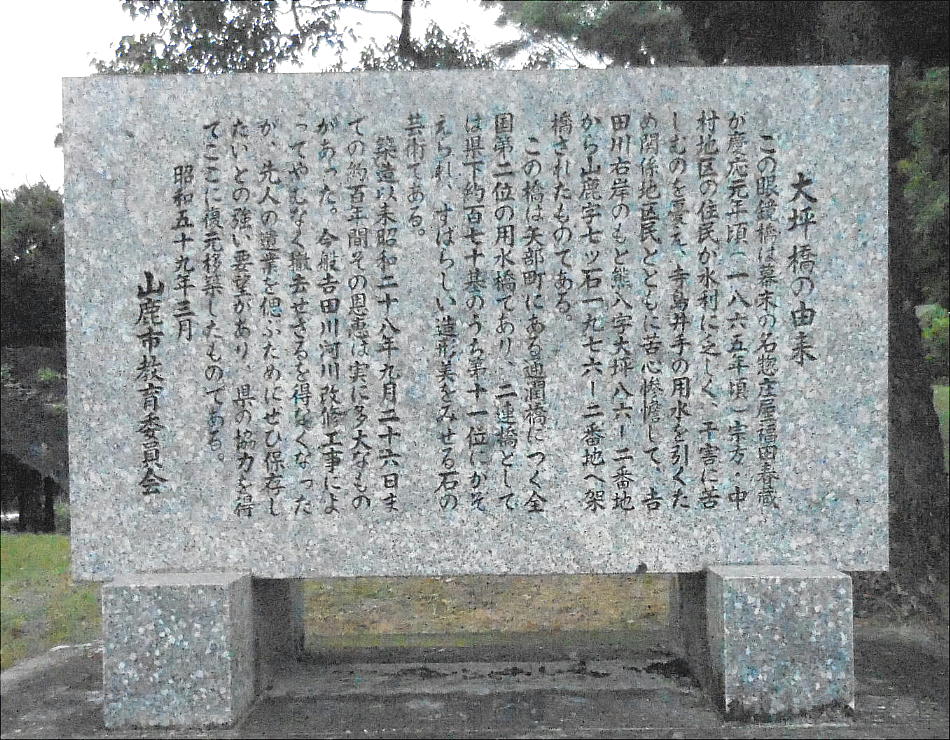 大坪橋の由来
この眼鏡橋は幕末の名惣庄屋福田春蔵
が慶応元年頃(一八六五年頃)宇方、中
村地区の住民が水利に乏しく、干害に苦
しむのを憂え、寺島井手の用水を引くた
め関係地区民とともに苦心惨憺して、吉
田川右岸のもと熊入字大坪八六ー二番地
から山鹿字七ッ石一九七六ー二番地へ架
橋されたものである。
この橋は矢部町にある通潤橋につぐ全
国第二位の用水橋であり、二連橋として
は県下約百七十基のうち第十一位にかぞ
えられ、すばらしい造形美をみせる石の
芸術である。
築造以来昭和二十八年九月二十六日ま
での約百年間その恩恵は実に多大なもの
があった。今般吉田川河川改修工事によ
ってやむなく撤去せざるを得なくなった
が、先人の遺業を偲ぶためにぜひ保存し
たいとの強い要望があり、県の協力を得
てここに復元移築したものである。
昭和五十九年三月
山鹿市教育委員会